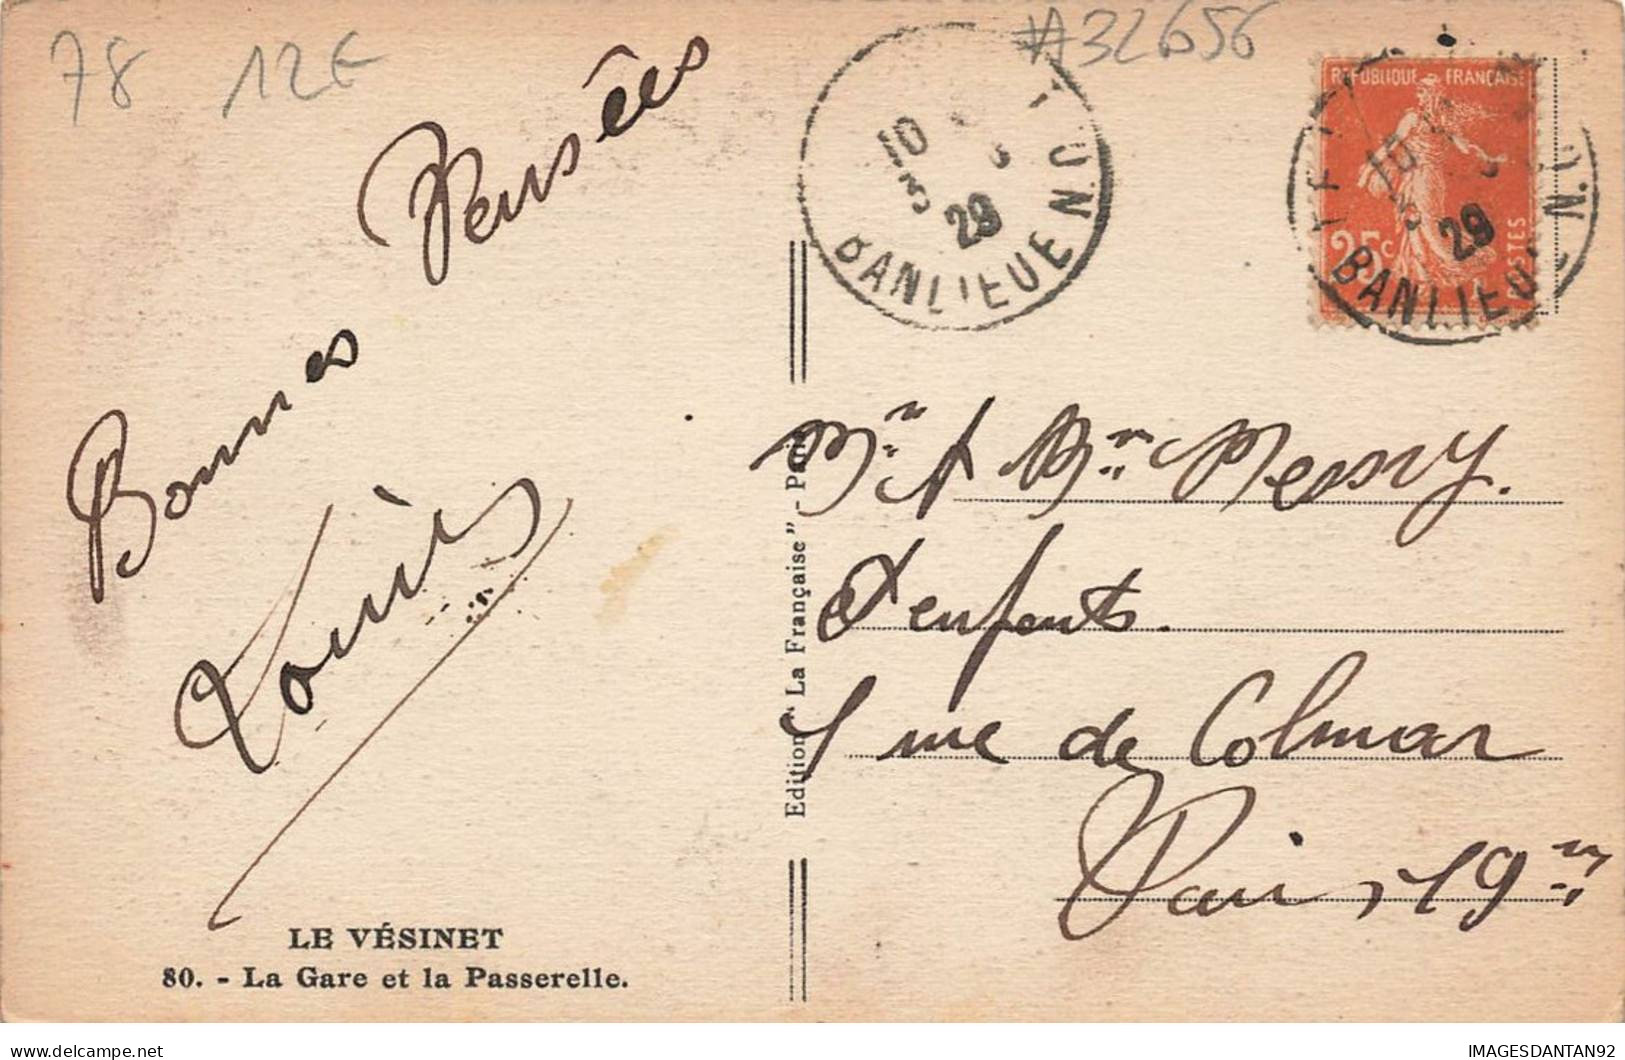 78 12€
#32656
Bonnes Pensées
Louis
LE VÉSINET
80. - La Gare et la Passerelle.
Edition "La Française" - Paris
10
3
29
BANLIEUE N
REPUBLIQUE FRANÇAISE
25c
POSTES
10
3
29
BANLIEUE N
Mr & Mme Messvy.
& enfants.
1 rue de Colmar
Paris 19me
IMAGESDANTAN92